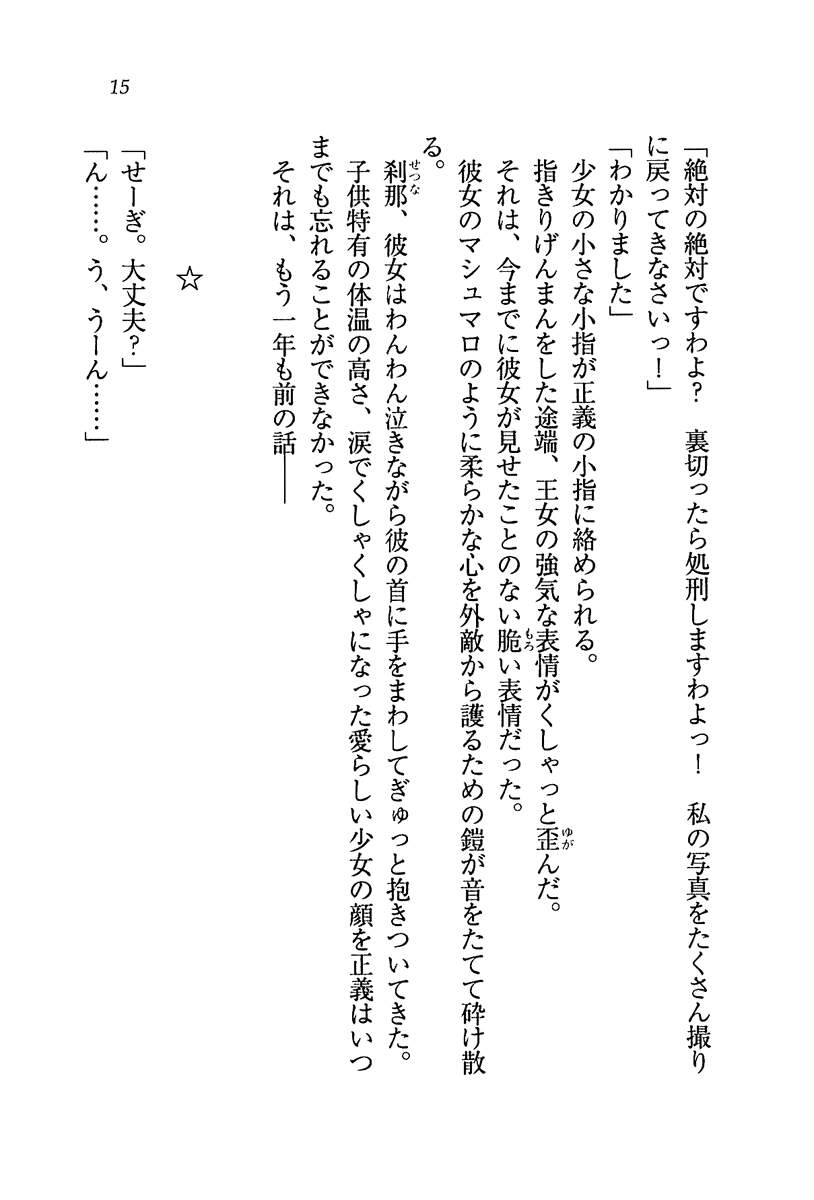 15
「絶対の絶対ですわよ？　裏切ったら処刑しますわよっ！　私の写真をたくさん撮り
に戻ってきなさいっ！」
「わかりました」
少女の小さな小指が正義の小指に絡められる。
指きりげんまんをした途端、王女の強気な表情がくしゃっと歪んだ。
それは、今までに彼女が見せたことのない脆い表情だった。
彼女のマシュマロのように柔らかな心を外敵から護るための鎧が音をたてて砕け散
る。
刹那、彼女はわんわん泣きながら彼の首に手をまわしてぎゅっと抱きついてきた。
子供特有の体温の高さ、涙でくしゃくしゃになった愛らしい少女の顔を正義はいつ
までも忘れることができなかった。
それは、もう一年も前の話――
☆
「せーぎ。大丈夫？」
「ん……。う、うーん……」